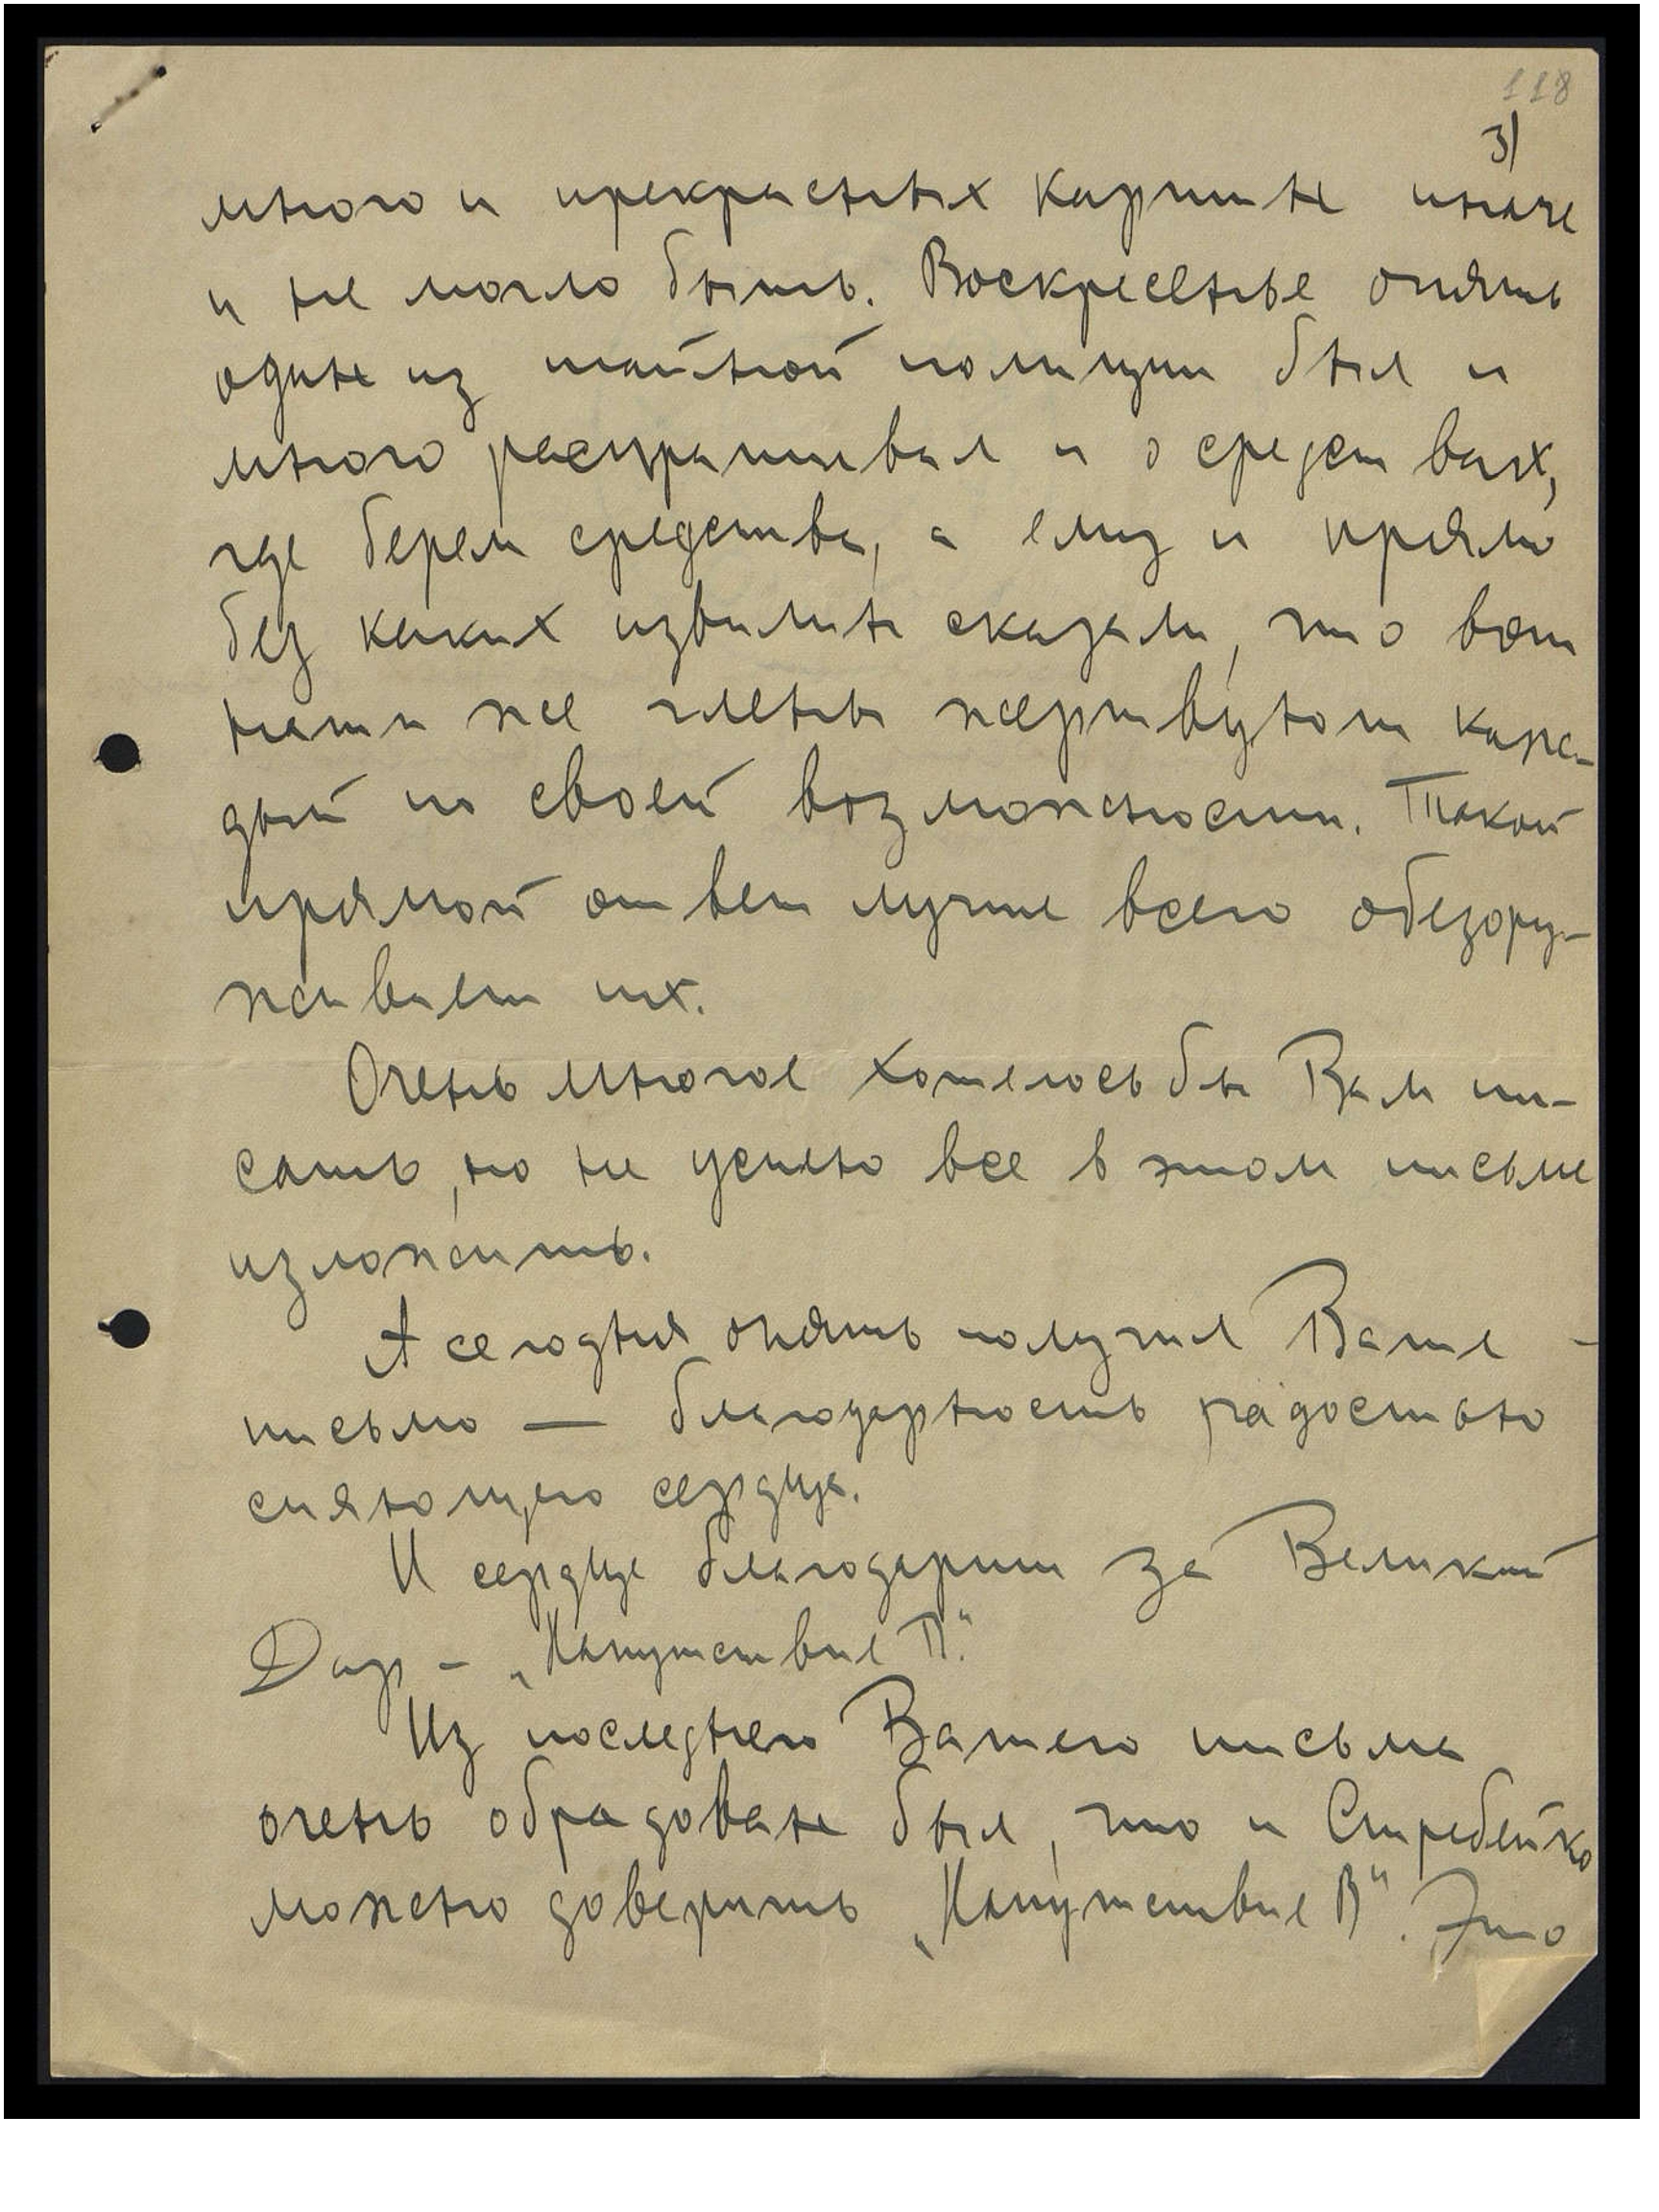 118
3)
много и прекрасных картин иначе
и не могло быть. Воскресенье опять
один из тайной полиции был и
много распрашивал и о средствах,
где берем средства, а ему и прямо
без каких извилин сказали, что вот
наши же члены жертвуют каж-
дый по своей возможности. Такой
прямой ответ лучше всего обезору-
живает их.
Очень многое хотелось бы Вам пи-
сать, но не успею все в этом письме
изложить.
А сегодня опять получил Ваше
письмо — благодарность радостью
сияющего сердца.
И сердце благодарит за Великий
Дар – „Напутствие В".
Из последнего Вашего письма
очень обрадован был, что и Стребейко
можно доверить „Напутствие В". Это